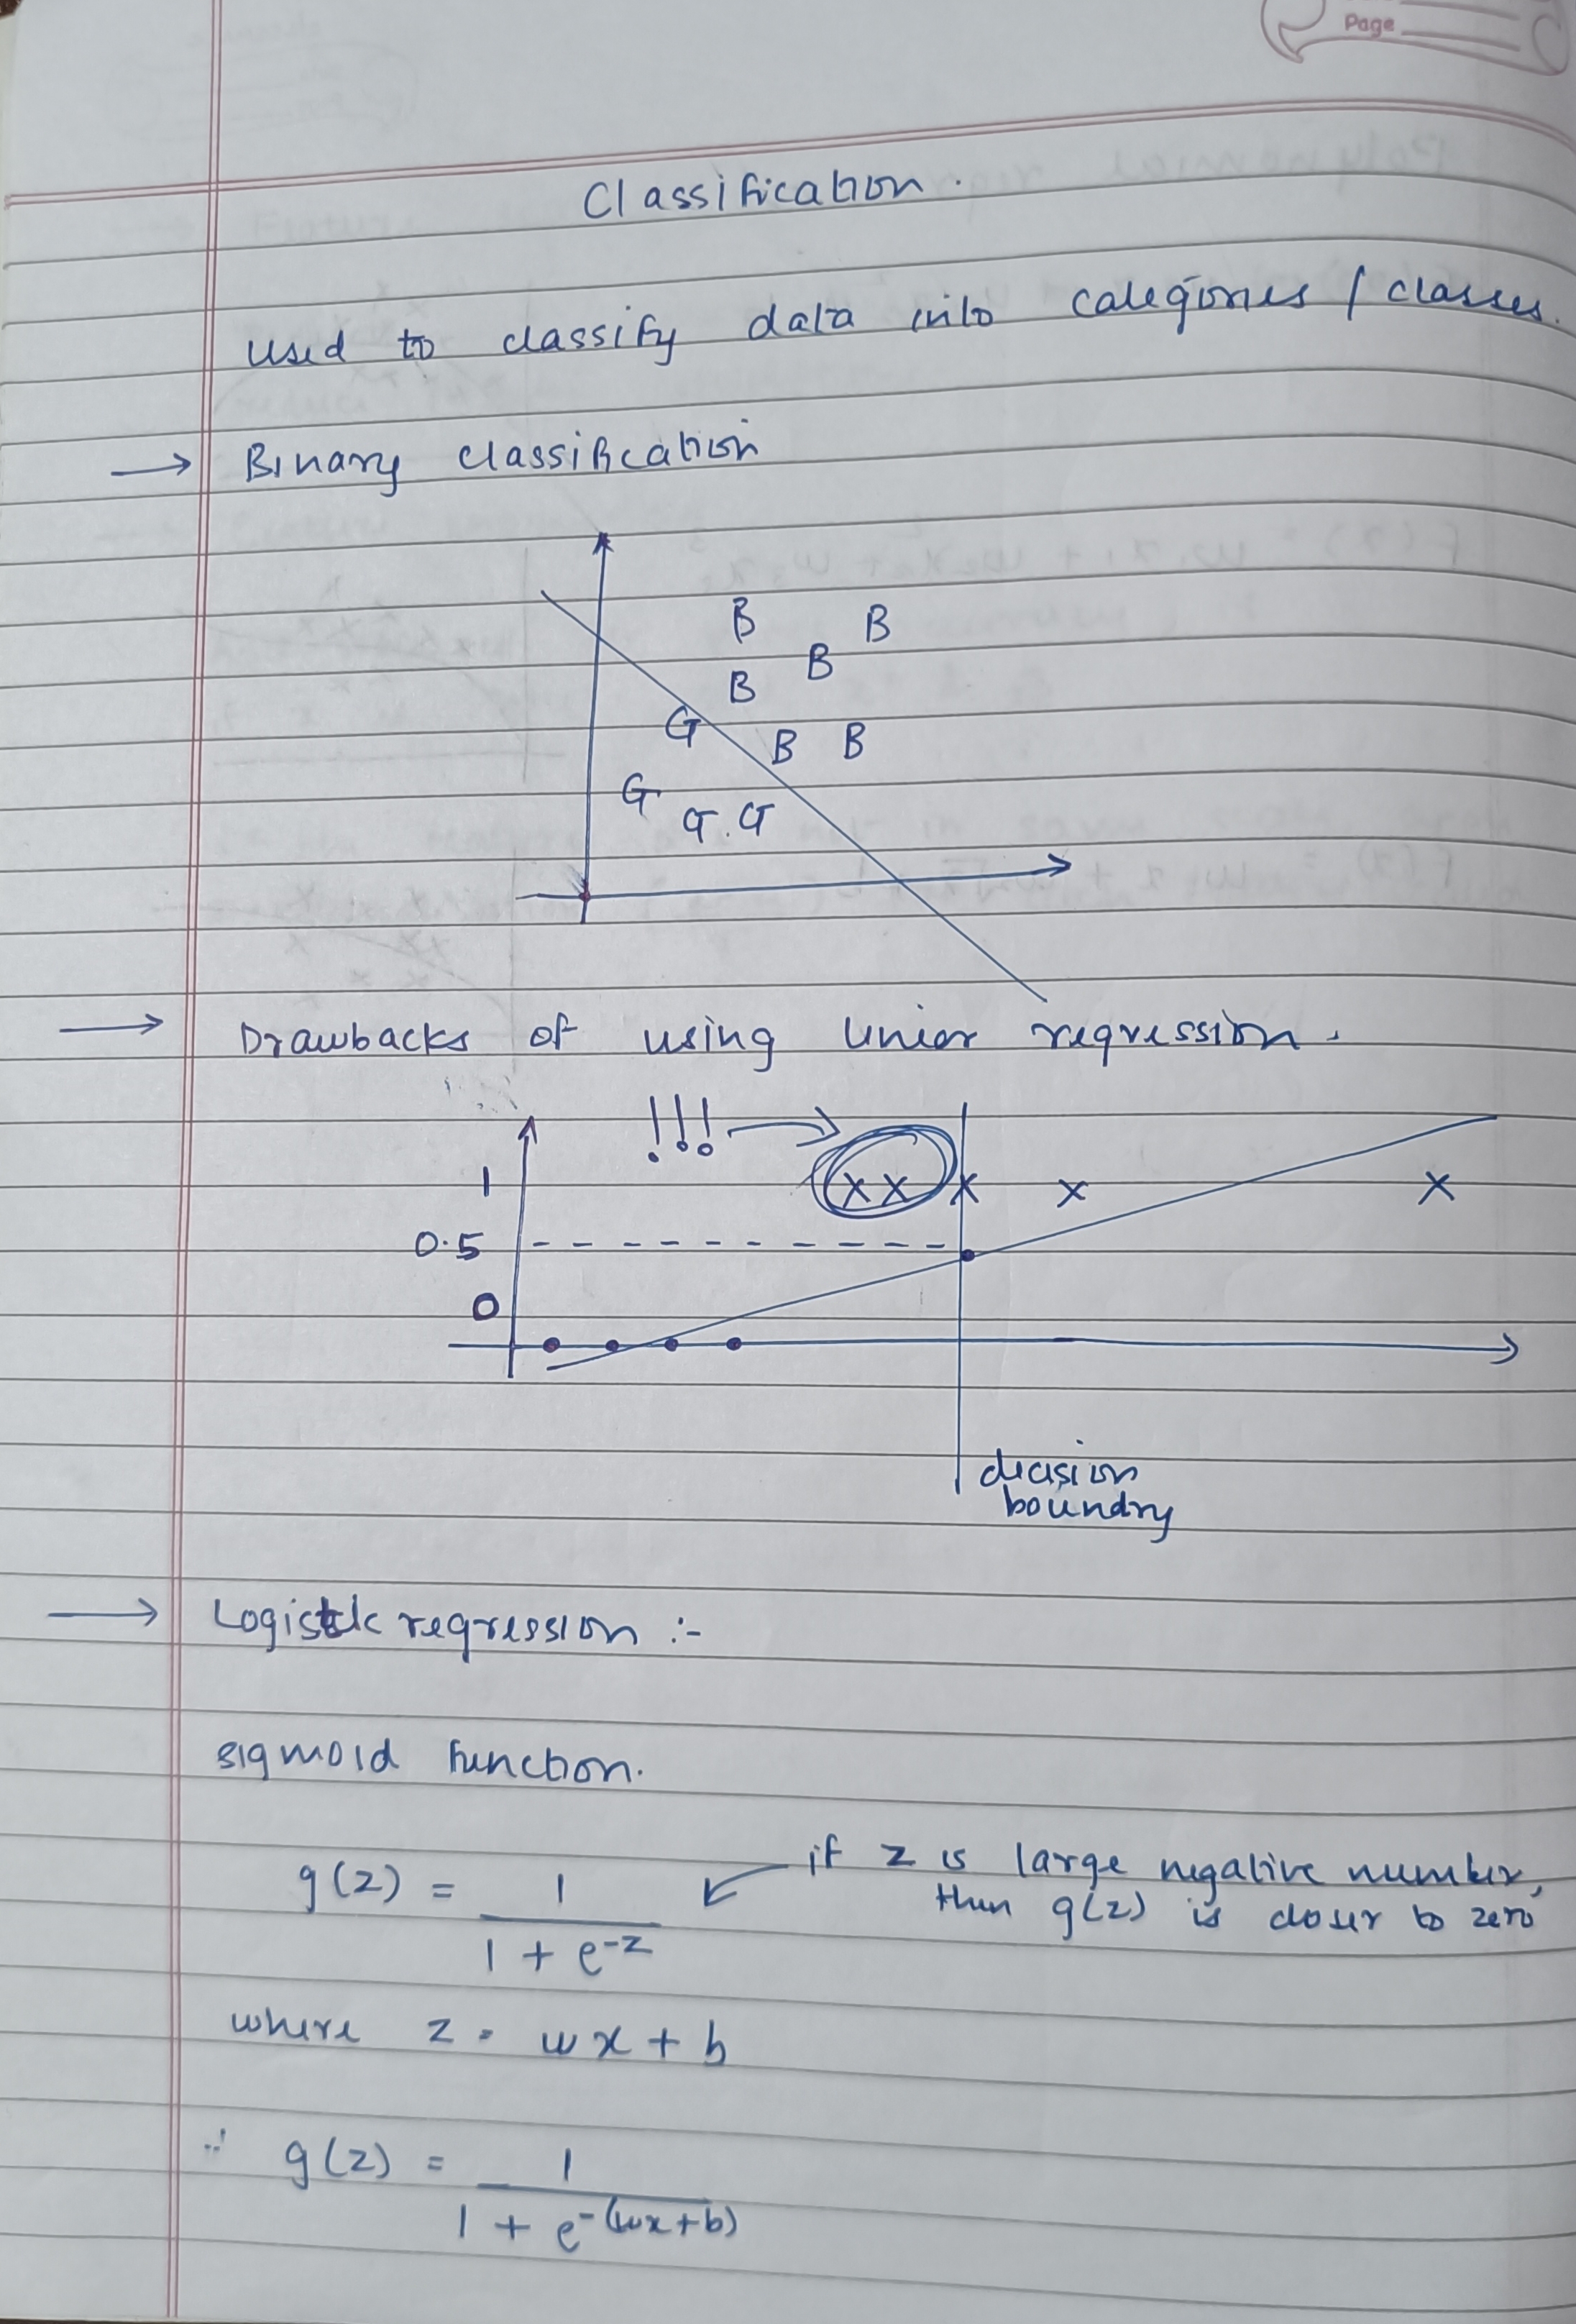 Page
Classification.
Used to classify data into categories / classes.
→ Binary classification
B B
B
B
G
B B
G
G . G
→ Drawbacks of using linear regression.
!!! →
1 x x x x x
0.5
0
decision
boundry
→ Logistic regression :-
sigmoid function.
if z is large negative number,
then g(z) is closer to zero
g(z) = 1 / (1 + e^-z)
where z = wx + b
∴ g(z) = 1 / (1 + e^-(wx+b))